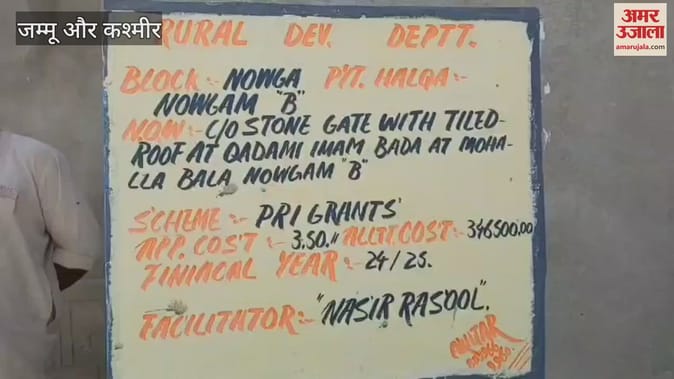 जम्मू और कश्मीर
अमर
उजाला
amarujala.com
RURAL DEV. DEPTT.
BLOCK:- NOWGA PYT. HALQA:-
NOWGAM "B"
N.O.W:- C/O STONE GATE WITH TILED-
ROOF AT QADAMI IMAM BADA AT MOHA-
LLA BALA NOWGAM "B"
SCHEME:- PRI GRANTS'
APP. COST:- 3.50." ALLTT.COST:- 346500.00
FINIACAL YEAR:- 24/25.
FACILITATOR:- "NASIR RASOOL".